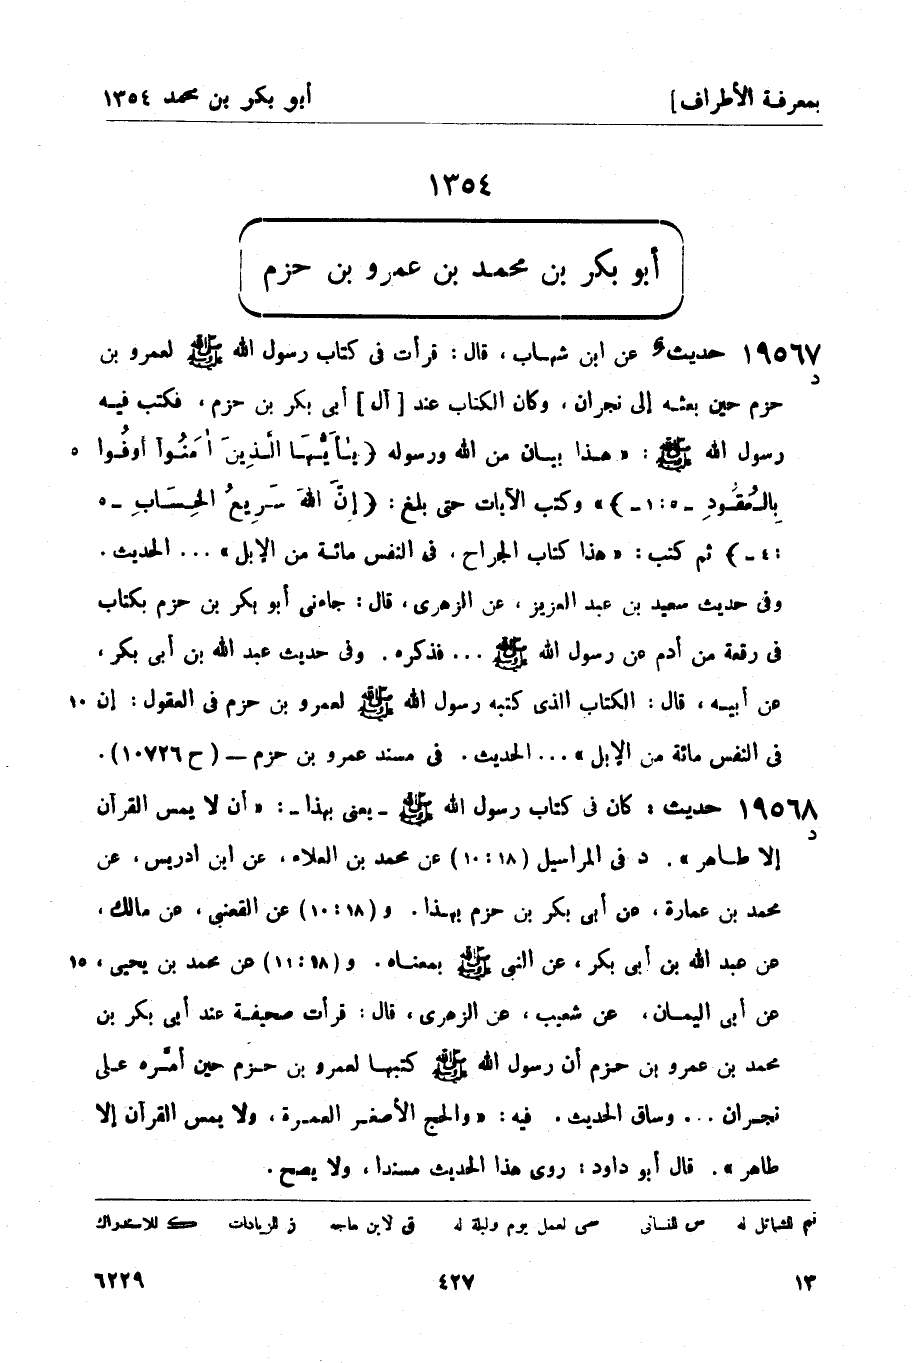 بمعرفة الأطراف] أبو بكر بن محمد ١٣٥٤
١٣٥٤
أبو بكر بن محمد بن عمرو بن حزم
١٩٥٦٧ حديث عن ابن شهاب ، قال : قرأت فى كتاب رسول الله ﷺ لعمرو بن
د
حزم حين بعثه إلى نجران ، وكان الكتاب عند [ آل ] أبى بكر بن حزم ، فكتب فيه
رسول الله ﷺ : « هذا بيان من الله ورسوله { يٰٓأَيُّهَا الَّذِينَ اٰمَنُوٓا أَوفُوا ٥
بِالعُقُودِ ـ ٥ : ١ ـ }» وكتب الآيات حتى بلغ : { إنَّ اللّٰهَ سَرِيعُ الحِسَابِ ـ ٥
: ٤ ـ } ثم كتب : « هذا كتاب الجراح ، فى النفس مائة من الإبل » ... الحديث .
وفى حديث سعيد بن عبد العزيز ، عن الزهرى ، قال : جاءنى أبو بكر بن حزم بكتاب
فى رقعة من أدم عن رسول الله ﷺ ... فذكره . وفى حديث عبد الله بن أبى بكر ،
عن أبيه ، قال : الكتاب الذى كتبه رسول الله ﷺ لعمرو بن حزم فى العقول : إن ١٠
فى النفس مائة من الإبل » ... الحديث . فى مسند عمرو بن حزم — ( ح ١٠٧٢٦ ) .
١٩٥٦٨ حديث : كان فى كتاب رسول الله ﷺ ـ يعنى بهذا ـ : « أن لا يمس القرآن
د
إلا طاهر » . د فى المراسيل ( ١٨ : ١٠ ) عن محمد بن العلاء ، عن ابن ادريس ، عن
محمد بن عمارة ، عن أبى بكر بن حزم بهذا . و ( ١٨ : ١٠ ) عن القعنبى ، عن مالك ،
عن عبد الله بن أبى بكر ، عن النبى ﷺ بمعناه . و ( ١٨ : ١١ ) عن محمد بن يحيى ، ١٥
عن أبى اليمان ، عن شعيب ، عن الزهرى ، قال : قرأت صحيفة عند أبى بكر بن
محمد بن عمرو بن حزم أن رسول الله ﷺ كتبها لعمرو بن حزم حين أمّره على
نجران ... وساق الحديث . فيه : « والحج الأصغر العمرة ، ولا يمس القرآن إلا
طاهر » . قال أبو داود : روى هذا الحديث مسندا ، ولا يصح .
تم للشمائل له س للنسائى سى لعمل يوم وليلة له ق لابن ماجه ز للزيادات ك للاستدراك
١٣ ٤٢٧ ٦٢٢٩